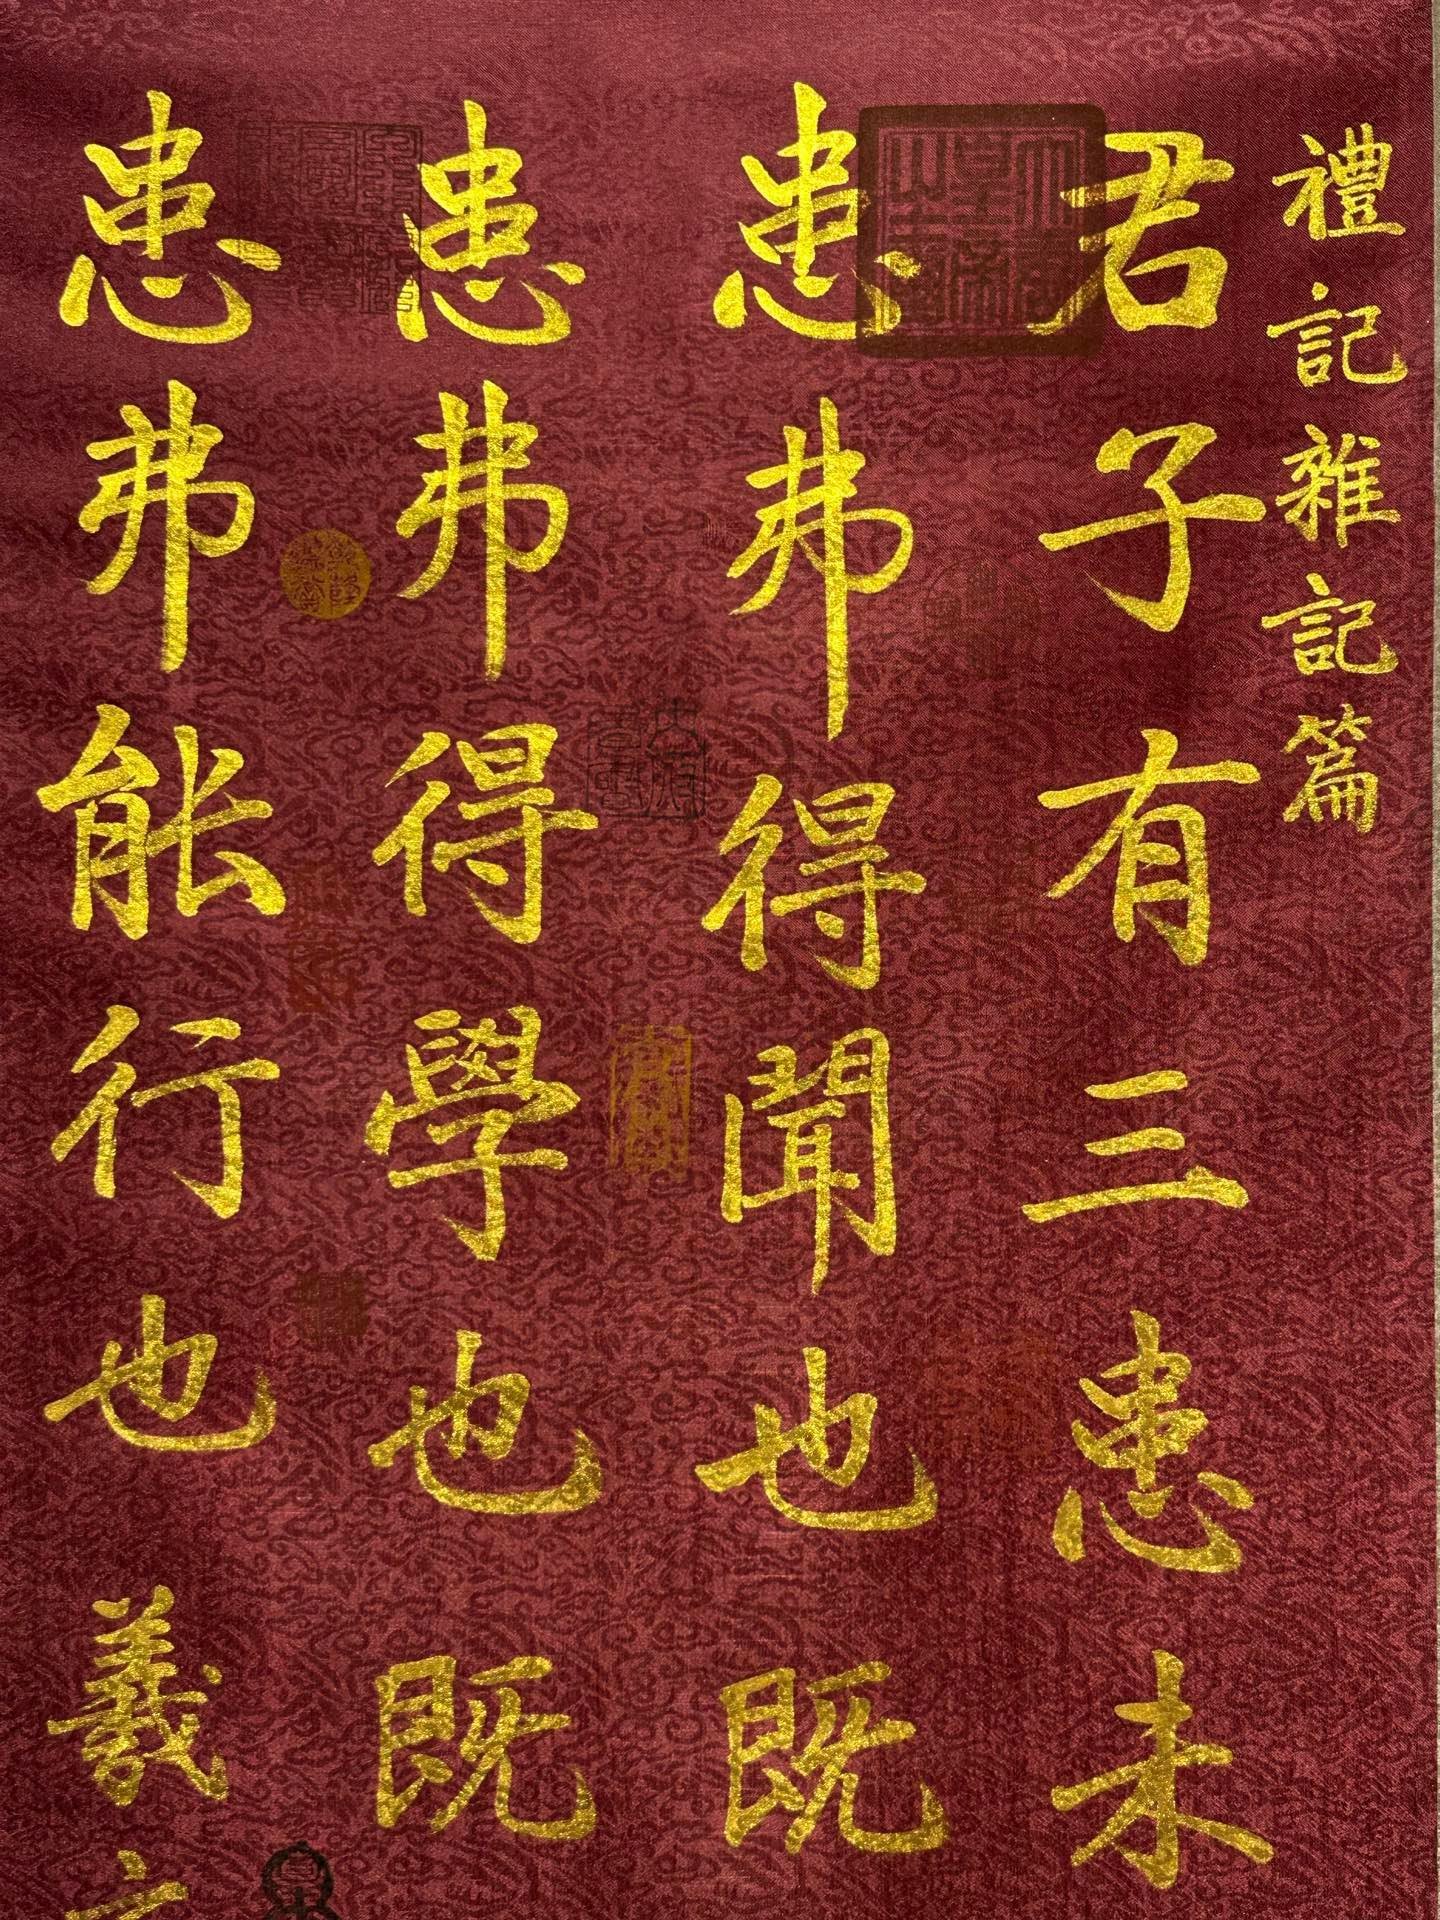 禮記雜記篇
君子有三患未
患弗得聞也既
患弗得學也既
患弗能行也羲